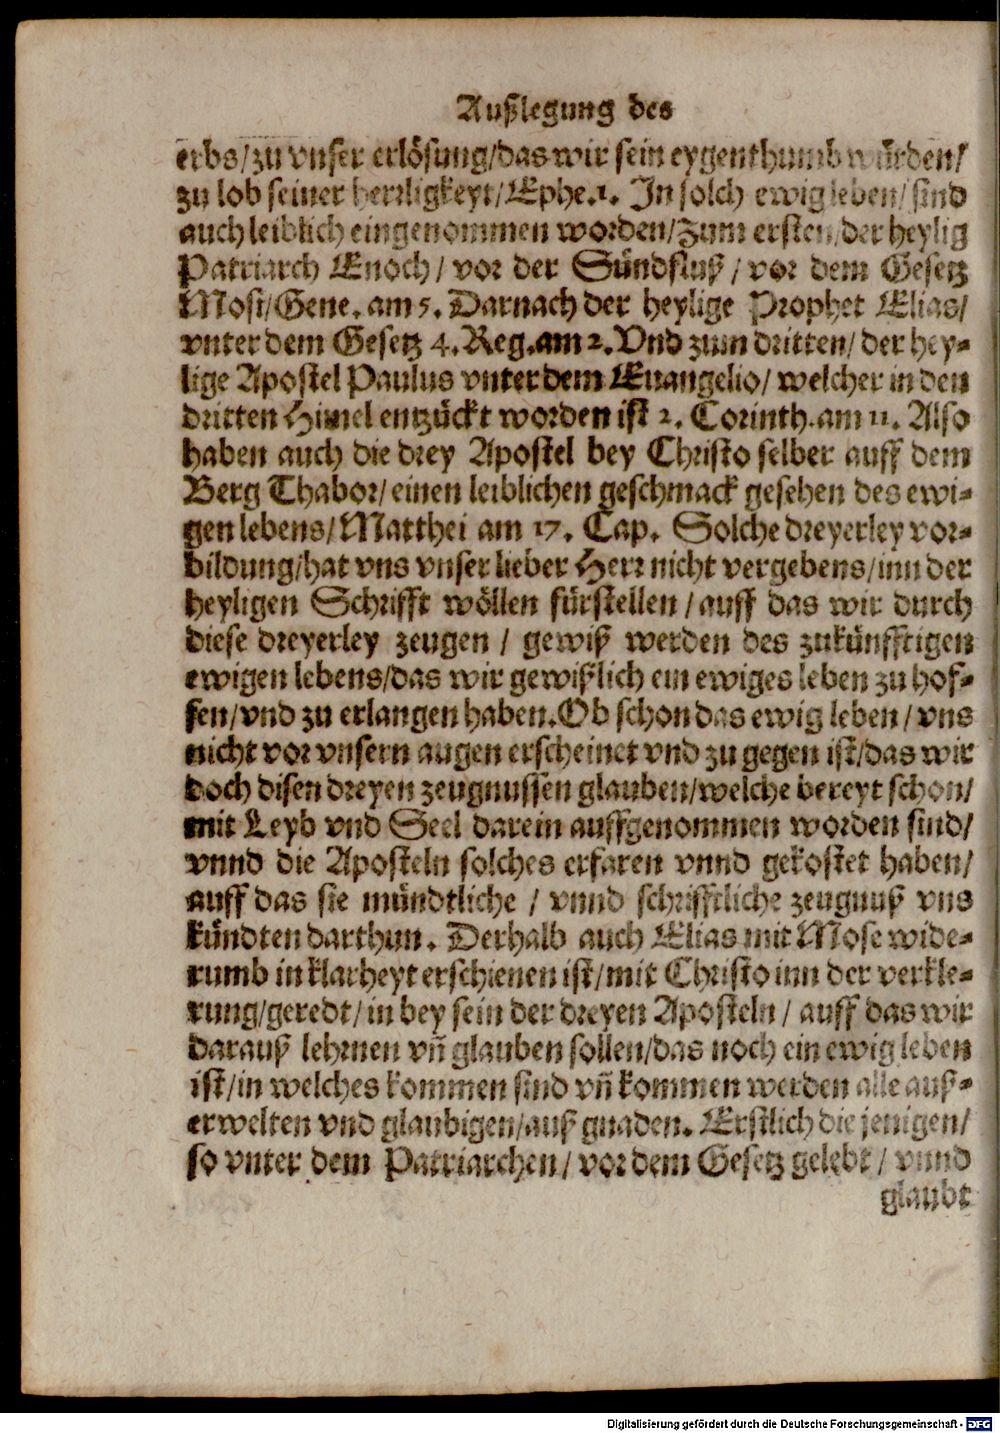 Außlegung des
erbs/zu vnser erlösung/das wir sein eygenthumb würden/
zu lob seiner herrligkeyt/Ephe.1. In solch ewig leben/sind
auch leiblich eingenommen worden/Zum ersten/der heylig
Patriarch Enoch/vor der Sündfluß/vor dem Gesetz
Mosi/Gene.am 5. Darnach der heylige Prophet Elias/
vnter dem Gesetz 4.Reg.am 2.Vnd zum dritten/der hey-
lige Apostel Paulus vnter dem Euangelio/welcher in den
dritten Himel entzückt worden ist 2. Corinth.am 11. Also
haben auch die drey Apostel bey Christo selber auff dem
Berg Thabor/einen leiblichen geschmack gesehen des ewi-
gen lebens/Matthei am 17. Cap. Solche dreyerley vor-
bildung/hat vns vnser lieber Herr nicht vergebens/inn der
heyligen Schrifft wöllen fürstellen/auff das wir durch
diese dreyerley zeugen/ gewiß werden des zukünfftigen
ewigen lebens/das wir gewißlich ein ewiges leben zu hof-
fen/vnd zu erlangen haben.Ob schon das ewig leben/vns
nicht vor vnsern augen erscheinet vnd zu gegen ist/das wir
doch disen dreyen zeugnussen glauben/welche bereyt schon/
mit Leyb vnd Seel darein auffgenommen worden sind/
vnnd die Aposteln solches erfaren vnnd gekostet haben/
auff das sie mündtliche/vnnd schrifftliche zeugnuß vns
kündten darthun. Derhalb auch Elias mit Mose wide-
rumb in klarheyt erschienen ist/mit Christo inn der verkle-
rung/geredt/in bey sein der dreyen Aposteln/auff das wir
darauß lehrnen vn̄ glauben sollen/das noch ein ewig leben
ist/in welches kommen sind vn̄ kommen werden alle auß-
erwelten vnd glaubigen/auß gnaden. Erstlich die jenigen/
so vnter dem Patriarchen/vor dem Gesetz gelebt/vnnd
glaubt
Digitalisierung gefördert durch die Deutsche Forschungsgemeinschaft - DFG